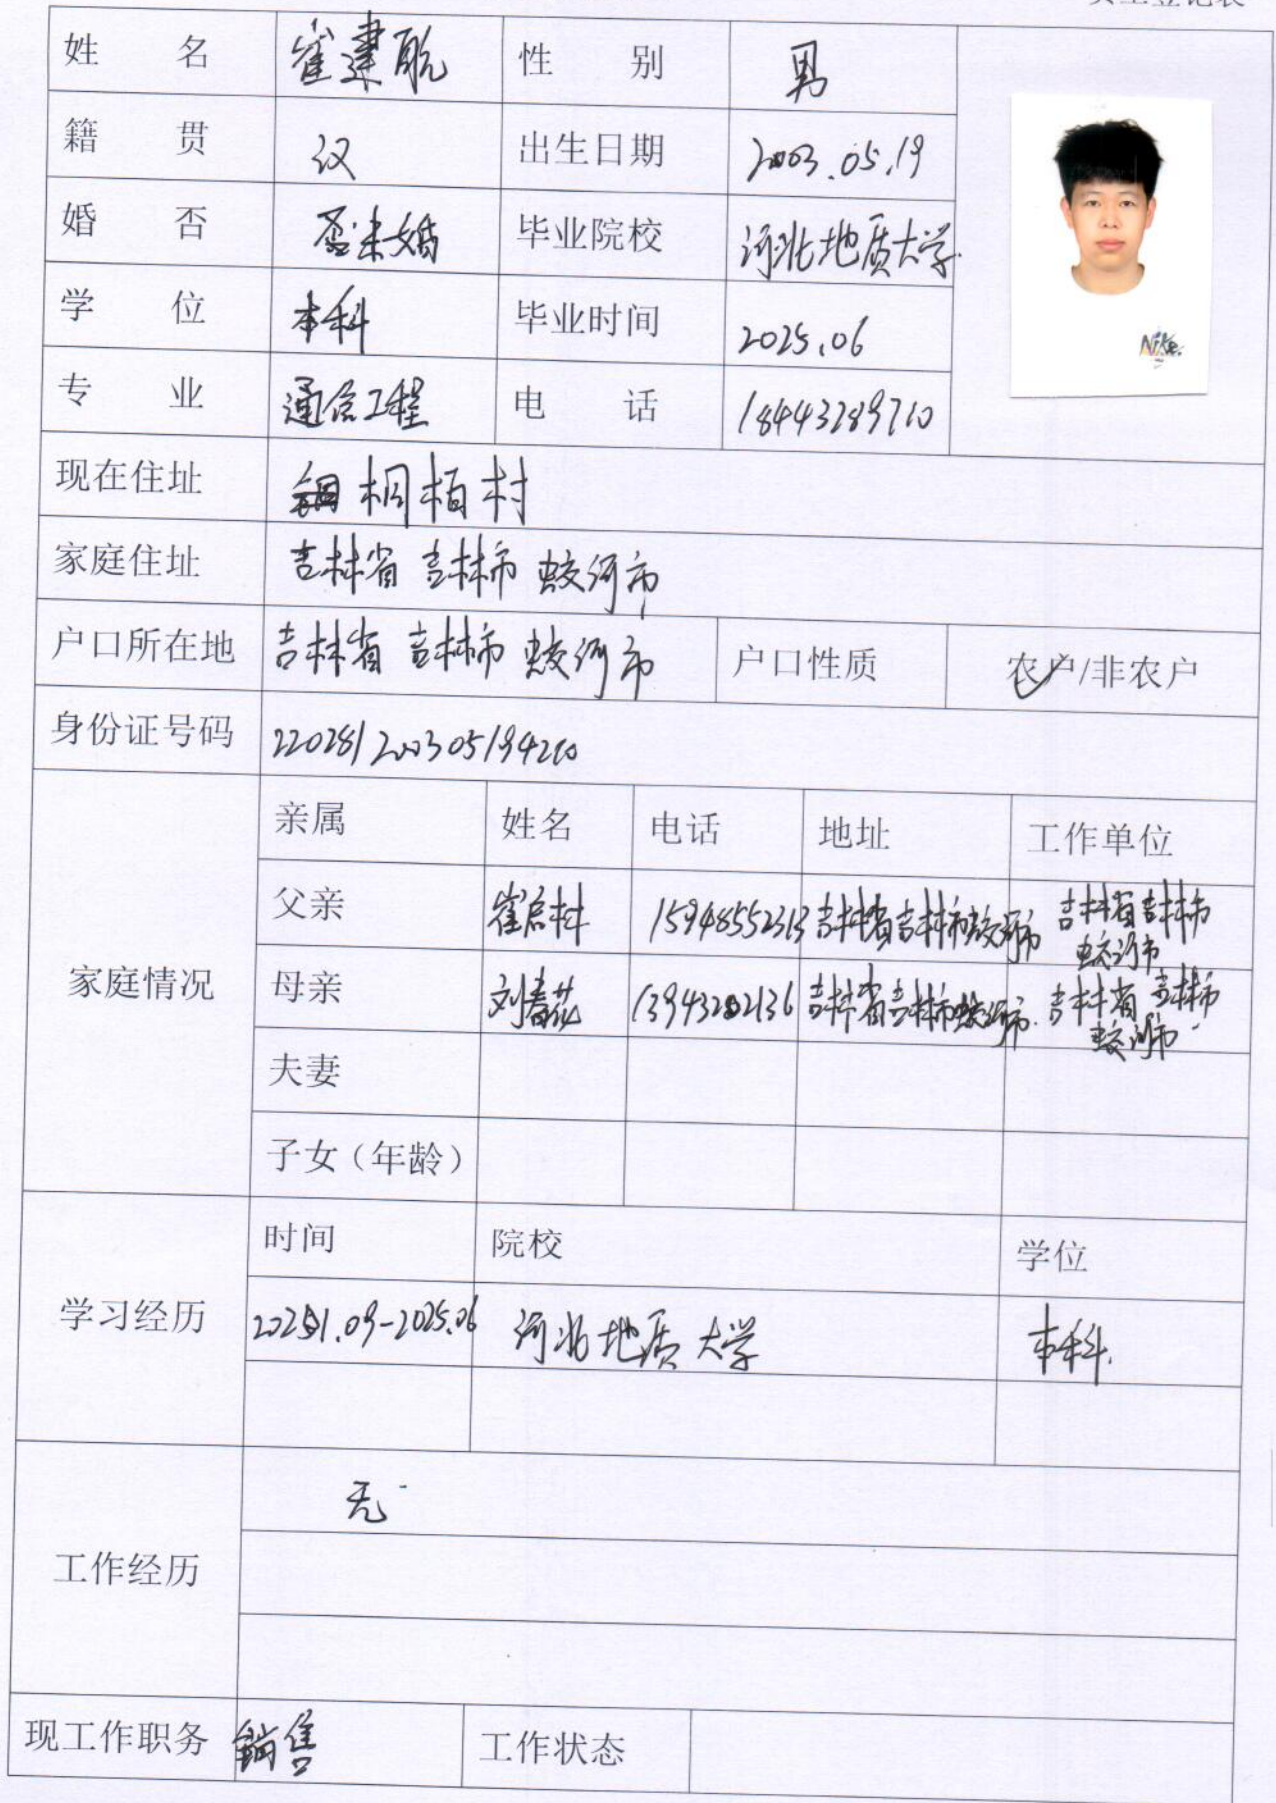 姓 名 崔建航 性 别 男
籍 贯 汉 出生日期 2003.05.19
婚 否 未婚 毕业院校 河北地质大学
学 位 本科 毕业时间 2025.06
Nike
专 业 通信工程 电 话 18443289710
现在住址 桐柏村
家庭住址 吉林省 吉林市 蛟河市
户口所在地 吉林省 吉林市 蛟河市 户口性质 农户/非农户
身份证号码 220281200305194210
亲属 姓名 电话 地址 工作单位
父亲 崔启林 15948552313 吉林省吉林市蛟河市 吉林省吉林市
蛟河市
家庭情况 母亲 刘春花 13943202136 吉林省吉林市蛟河市 吉林省 吉林市
蛟河市
夫妻
子女（年龄）
时间 院校 学位
学习经历 2021.09-2025.06 河北地质大学 本科
无
工作经历
现工作职务 销售 工作状态